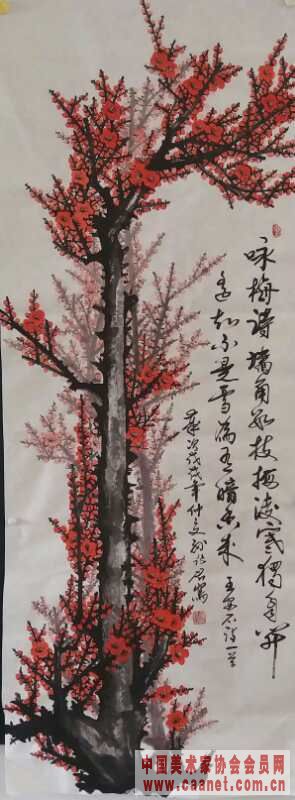 咏梅诗墙角数枝梅凌寒独自开
遥知不是雪为有暗香来王安石诗一首
岁次戊戌年仲夏
中国美术家协会会员网
www.caanet.com.cn